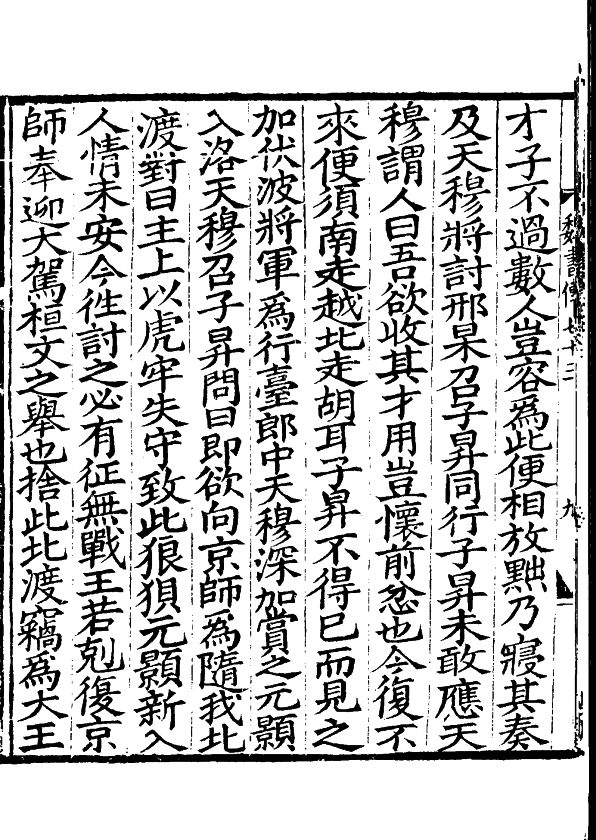 才子不過數人豈容爲此便相放黜乃寢其奏
及天穆將討邢杲召子昇同行子昇未敢應天
穆謂人曰吾欲收其才用豈懷前忿也今復不
來便須南走越北走胡耳子昇不得已而見之
加伏波將軍爲行臺郎中天穆深加賞之元顥
入洛天穆召子昇問曰即欲向京師爲隨我北
渡對曰主上以虎牢失守致此狼狽元顥新入
人情未安今徃討之必有征無戰王若剋復京
師奉迎大駕桓文之舉也捨此北渡竊爲大王
魏書傳七十三
九